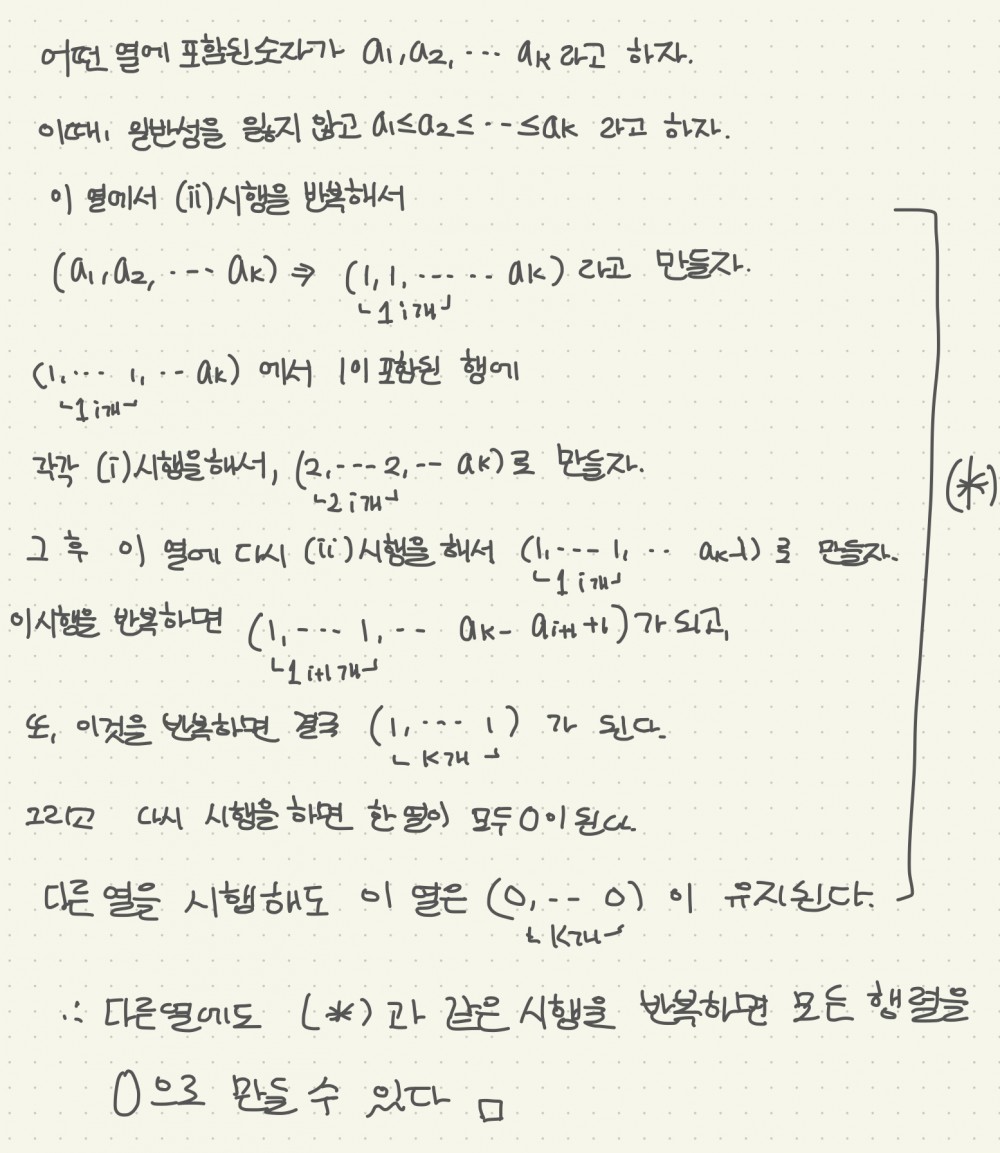 어떤 열에 포함된 숫자가 a₁, a₂, ⋯ aₖ 라고 하자.
이때, 일반성을 잃지 않고 a₁≤a₂≤⋯≤aₖ 라고 하자.
이 열에서 (ii)시행을 반복해서
(a₁, a₂, ⋯ aₖ) ⇒ (1, 1, ⋯⋯ aₖ) 라고 만들자.
1 i개
(1, ⋯ 1, ⋯ aₖ) 에서 1이 포함된 행에
1 i개
각각 (i)시행을해서, (2, ⋯ 2, ⋯ aₖ)로 만들자.
2 i개
그 후 이 열에 다시 (ii)시행을 해서 (1, ⋯ 1, ⋯ aₖ-1) 로 만들자.
1 i개
이시행을 반복하면 (1, ⋯ 1, ⋯ aₖ- aᵢ₊₁+1)가 되고,
1 i+1개
또, 이것을 반복하면 결국 (1, ⋯ 1) 가 된다.
K개
그리고 다시 시행을 하면 한 열이 모두 0이 된다.
다른 열을 시행해도 이 열은 (0, ⋯ 0) 이 유지된다.
K개
(*)
∴ 다른열에도 (*)과 같은 시행을 반복하면 모든 행렬을
0으로 만들 수 있다 □